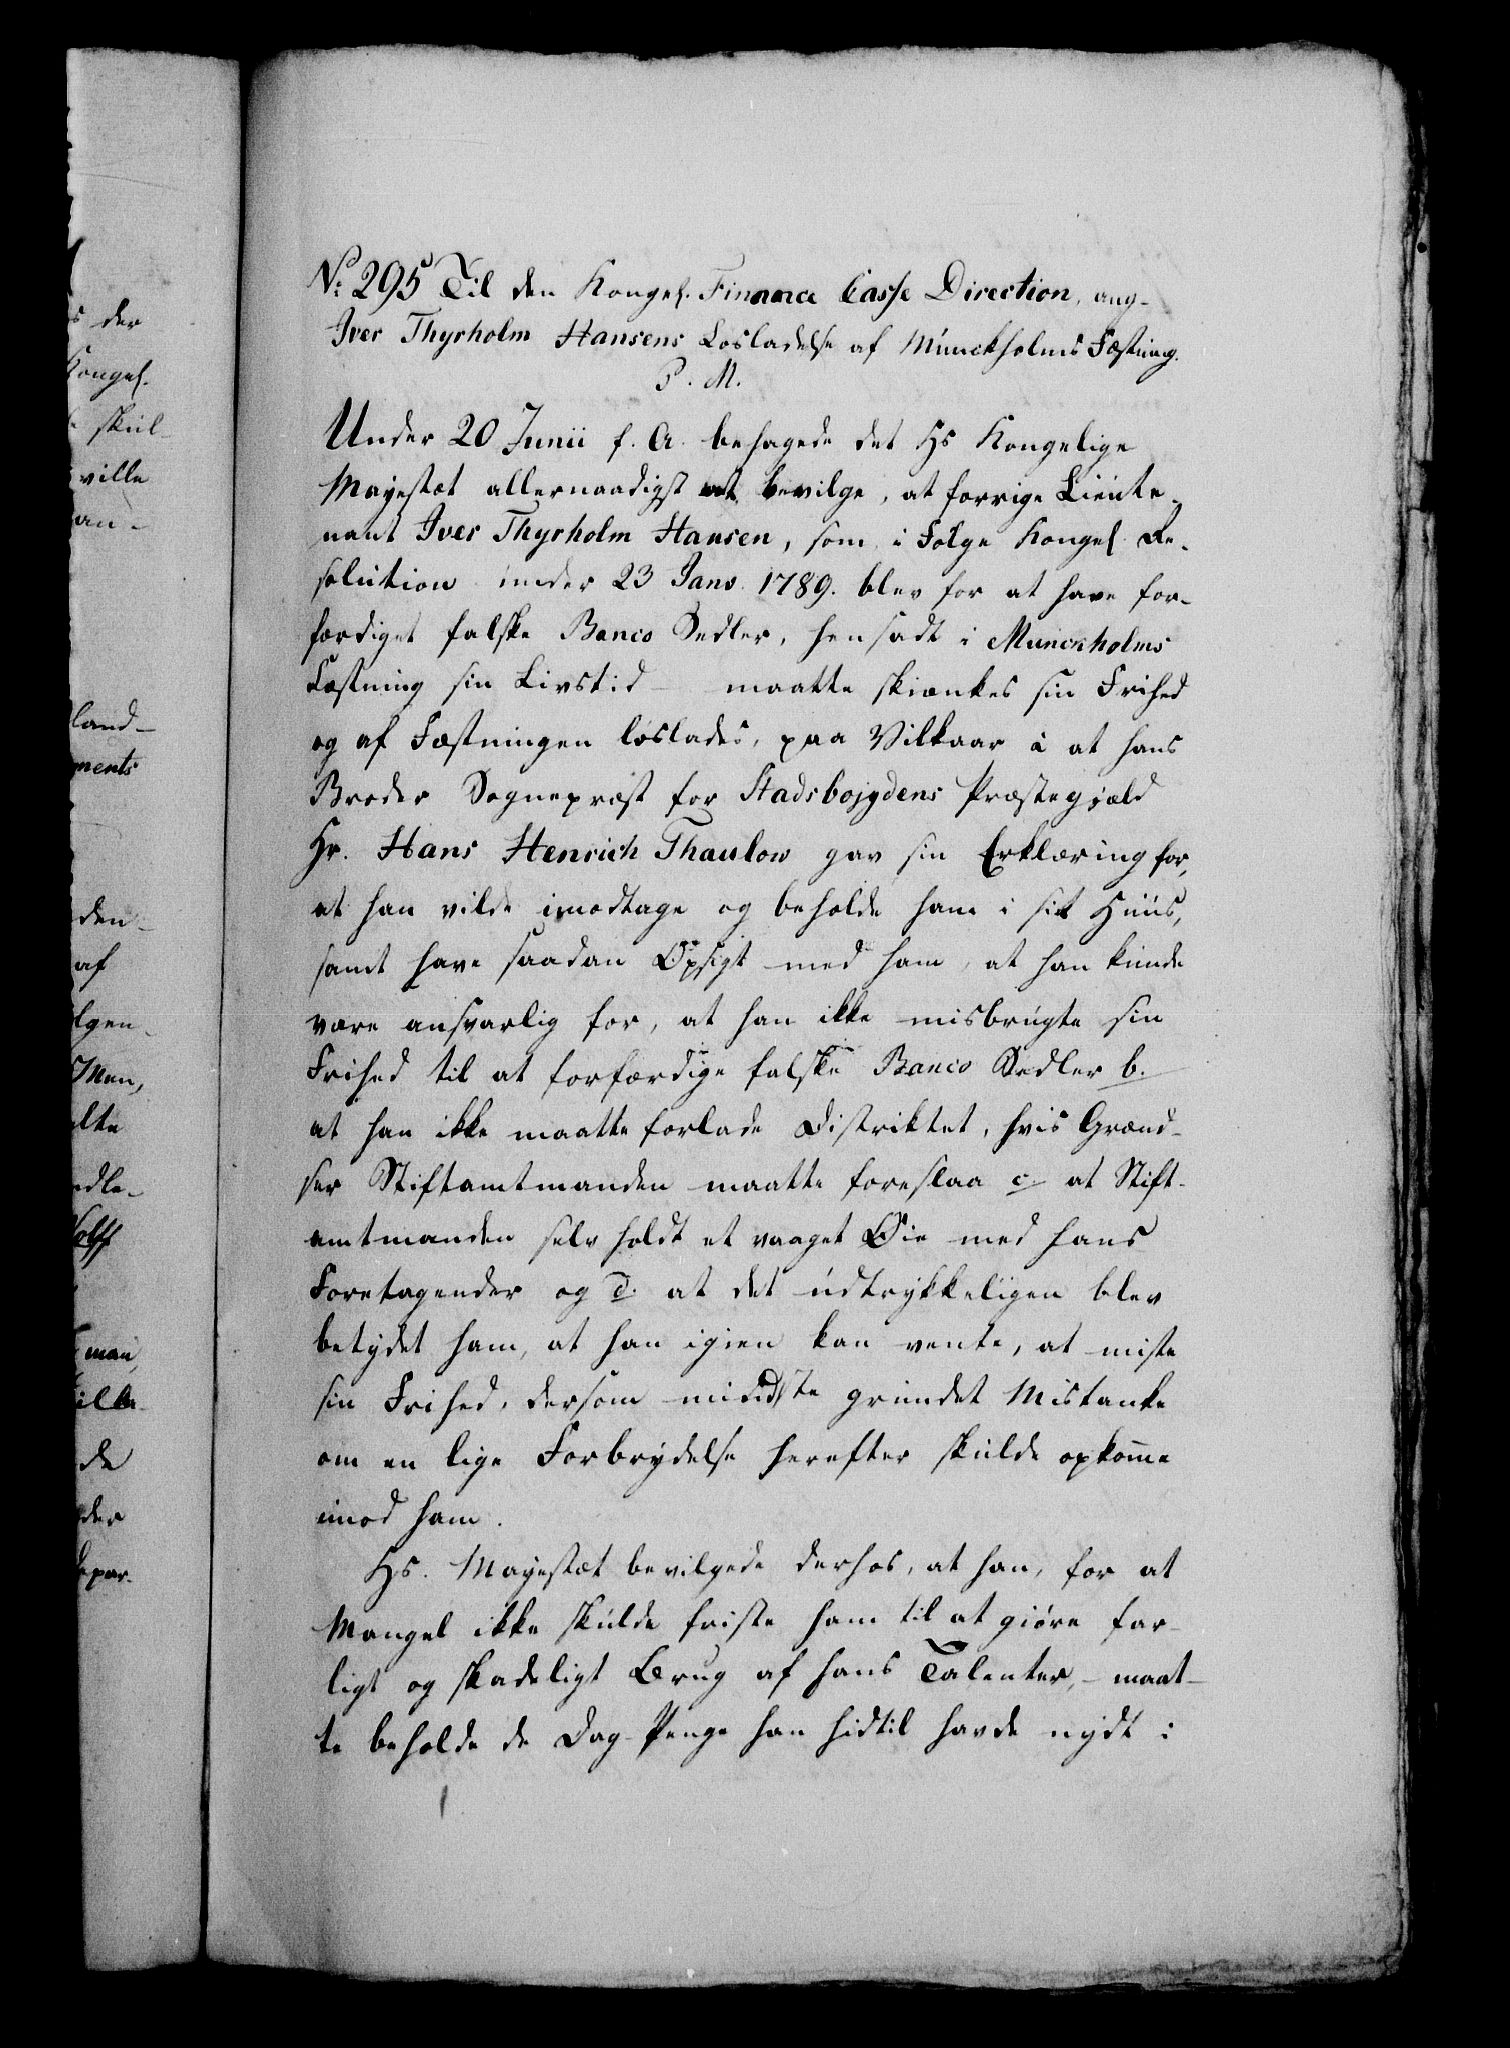 No 295 Til den Kongel. Finance Casse Direction, ang-
Iver Thyrholm Hansens Løsladelse af Munckholms Fæstning.
P. M.
Under 20 Junii f. A. behagede det Hs Kongelige
Mayestæt allernaadigst at bevilge, at forrige Lieute-
nant Iver Thyrholm Hansen, som i Følge Kongel. Re-
solution under 23 Janv. 1789. blev for at have for-
færdiget falske Banco Sedler, hensadt i Munckholms
Fæstning sin Livstid – maatte skiænkes sin Frihed
og af Fæstningen løslades, paa Vilkaar a at hans
Broder Sognepræst for Stadsbojgdens Præstegjæld
Hr. Hans Henrich Thaulow gav sin Erklæring for,
at han vilde imodtage og beholde ham i sit Huus,
samt have saadan Opsigt med ham, at han kunde
være ansvarlig for, at han ikke misbrugte sin
Frihed til at forfærdige falske Banco Sedler b.
at han ikke maatte forlade Distriktet, hvis Grænd-
ser Stiftamtmanden maatte foreslaa c. at Stift-
amtmanden selv holdt et vaaget Øie med hans
Foretagender og d. at det udtrykkeligen blev
betydet ham, at han igien kan vente, at miste
sin Frihed, dersom mindste grundet Mistanke
om en lige Forbrydelse herefter skulde opkom̅e
imod ham.
Hs. Mayestæt bevilgede derhos, at han, for at
Mangel ikke skulde friste ham til at giøre far-
ligt og skadeligt Brug af hans Talenter, – maat-
te beholde de Dag-Penge han hidtil havde nydt i
s der
Kongel.
skul-
ville
an-
land-
ments
den-
af
lgen-
Men,
elte
edle-
Wolff
man,
ille-
de
der
Depar-